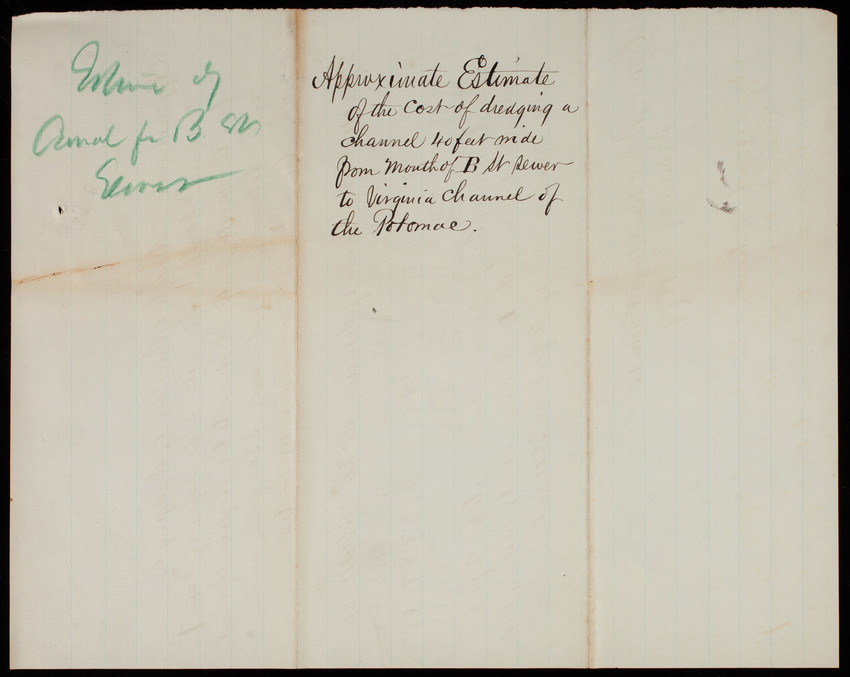 of
for B St
Sewer
Approximate Estimate
of the Cost of dredging a
Channel 40 feet wide
from Mouth of B St Sewer
to Virginia Channel of
the Potomac.